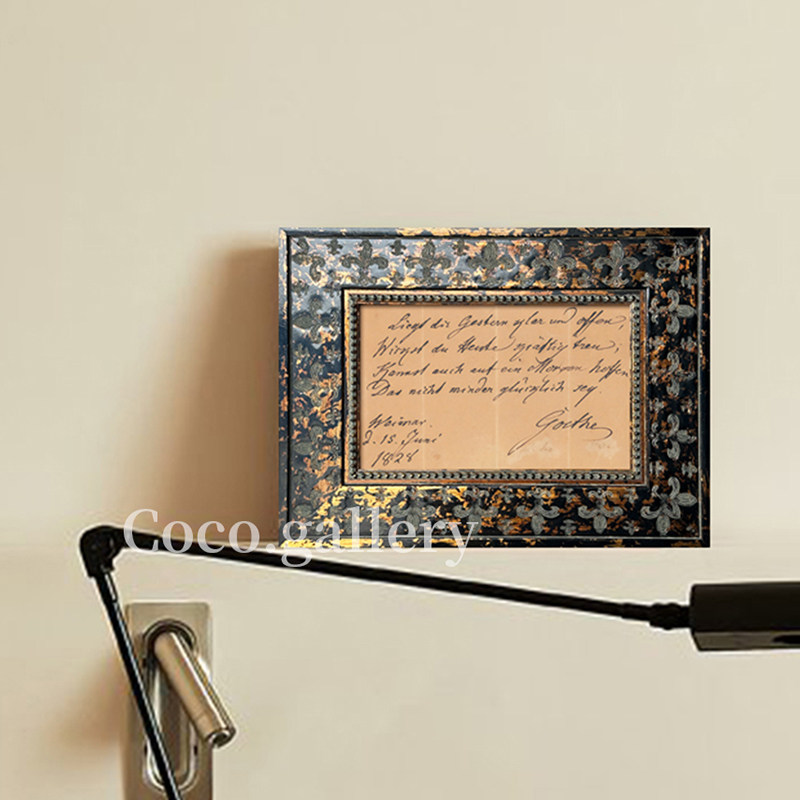 Liegt dir Gestern klar und offen,
Wirkst du Heute kräftig treu;
Kannst auch auf ein Morgen hoffen
Das nicht minder glücklich sey
Goethe
Weimar.
d. 15. Juni
1828
Coco.gallery